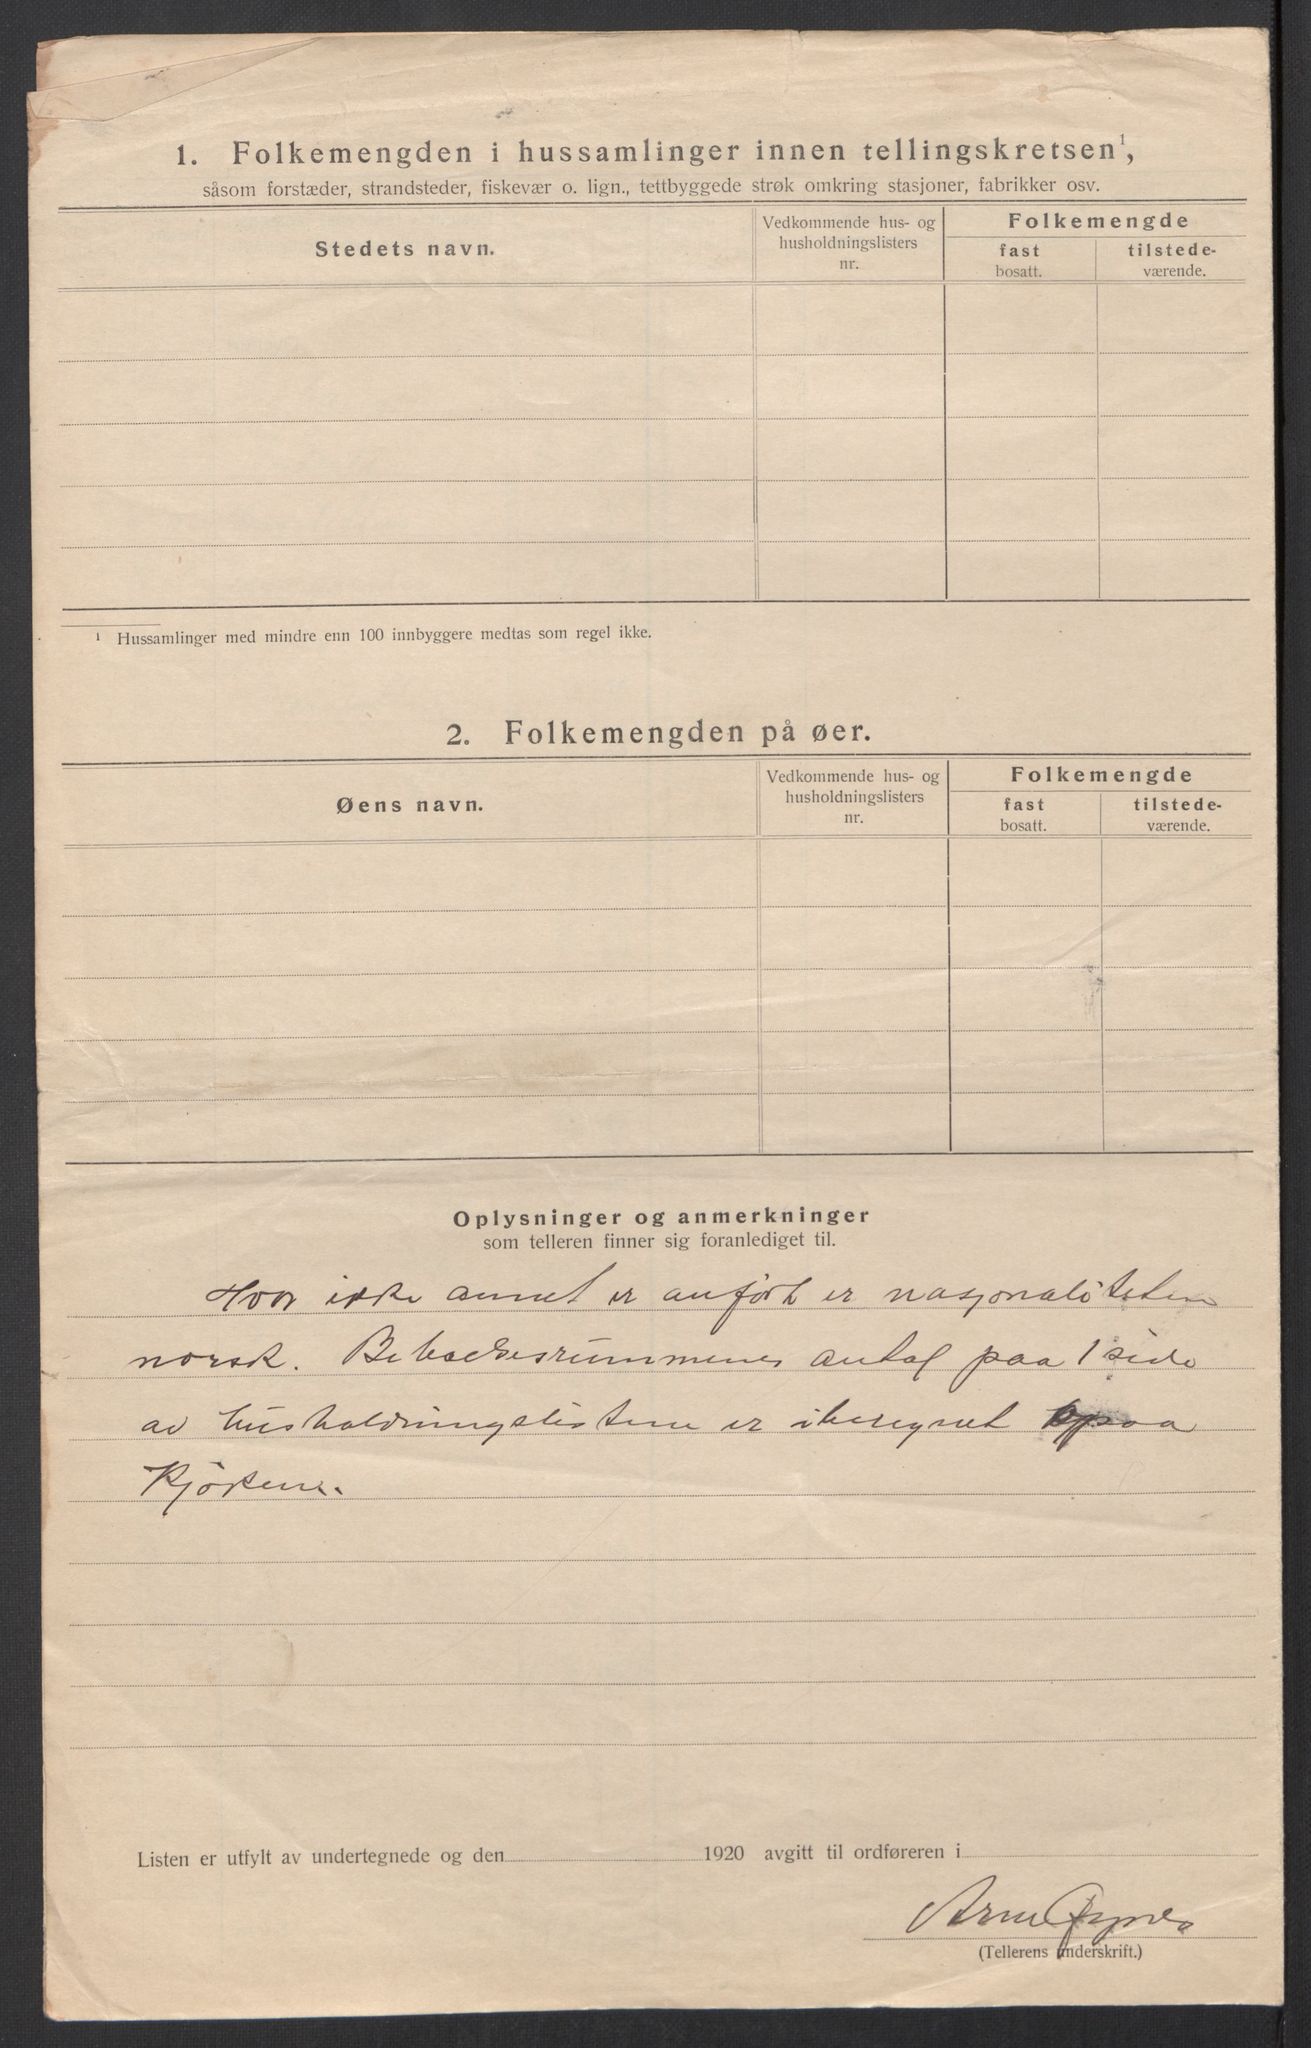 1. Folkemengden i hussamlinger innen tellingskretsen¹,
såsom forstæder, strandsteder, fiskevær o. lign., tettbyggede strøk omkring stasjoner, fabrikker osv.
Stedets navn.
Vedkommende hus- og
husholdningslisters
nr.
Folkemengde
fast
bosatt.
tilstede-
værende.
¹ Hussamlinger med mindre enn 100 innbyggere medtas som regel ikke.
2. Folkemengden på øer.
Øens navn.
Vedkommende hus- og
husholdningslisters
nr.
Folkemengde
fast
bosatt.
tilstede-
værende.
Oplysninger og anmerkninger
som telleren finner sig foranlediget til.
Hvor ikke annet er anført er nasjonaliteten
norsk. antal paa 1 side
av husholdningslistene er iberegnet
Kjøkken.
Listen er utfylt av undertegnede og den 1920 avgitt til ordføreren i
Arne
(Tellerens underskrift.)